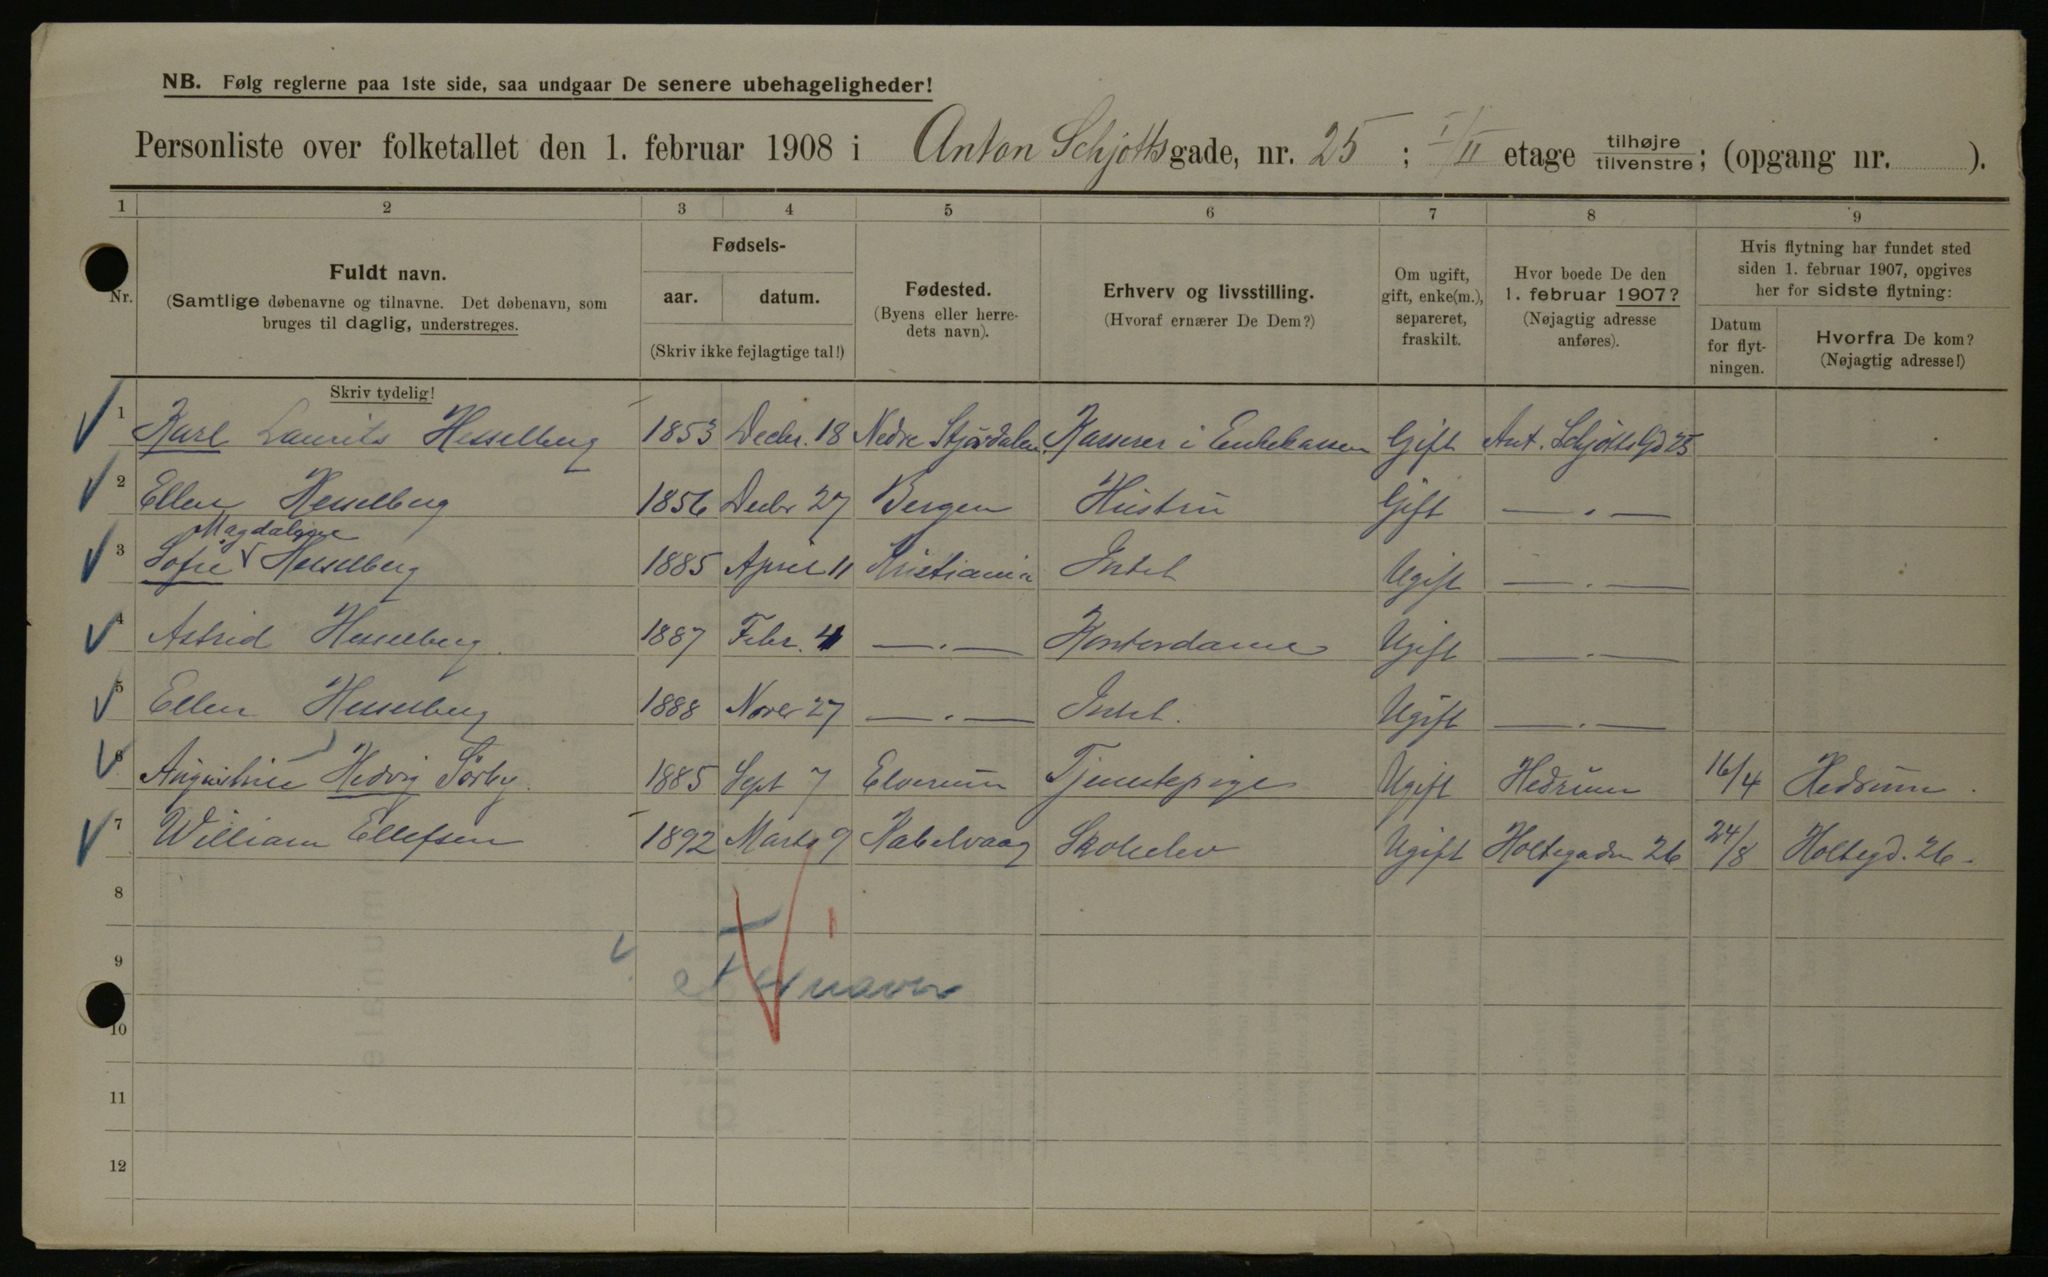 NB. Følg reglerne paa 1ste side, saa undgaar De senere ubehageligheder!
Personliste over folketallet den 1. februar 1908 i Anton Schjøttsgade, nr. 25 ; I/II etage tilhøjre/tilvenstre; (opgang nr. ).
1 2 3 4 5 6 7 8 9
Nr.
Fuldt navn.
(Samtlige døbenavne og tilnavne. Det døbenavn, som
bruges til daglig, understreges.
Skriv tydelig!
Fødsels-
aar. datum.
(Skriv ikke fejlagtige tal!)
Fødested.
(Byens eller herre-
dets navn).
Erhverv og livsstilling.
(Hvoraf ernærer De Dem?)
Om ugift,
gift, enke(m.),
separeret,
fraskilt.
Hvor boede De den
1. februar 1907?
(Nøjagtig adresse
anføres).
Hvis flytning har fundet sted
siden 1. februar 1907, opgives
her for sidste flytning:
Datum
for flyt-
ningen.
Hvorfra De kom?
(Nøjagtig adresse!)
1 Karl Laurits Hesselberg 1853 Decbr. 18 Nedre Stjørdalen Kasserer i Enkekassen Gift Ant. Schjøtts Gd 25
2 Ellen Hesselberg 1856 Decbr 27 Bergen Hustru Gift — . —
Magdalene
3 Sofie Hesselberg 1885 April 11 Kristiania Intet Ugift — . —
4 Astrid Hesselberg. 1887 Febr. 4 — . — Kontordame Ugift — . —
5 Ellen Hesselberg 1888 Novbr 27 — . — Intet. Ugift — . —
6 Augustine Hedvig Sørby. 1885 Sept 7 Elverum Tjenestepige Ugift Hedrum 16/4 Hedrum.
7 William Ellefsen 1892 Marts 9 Kabelvaag Skoleelev Ugift Holtegaden 26 24/8 Holtegd. 26.
8
9
10
11
12